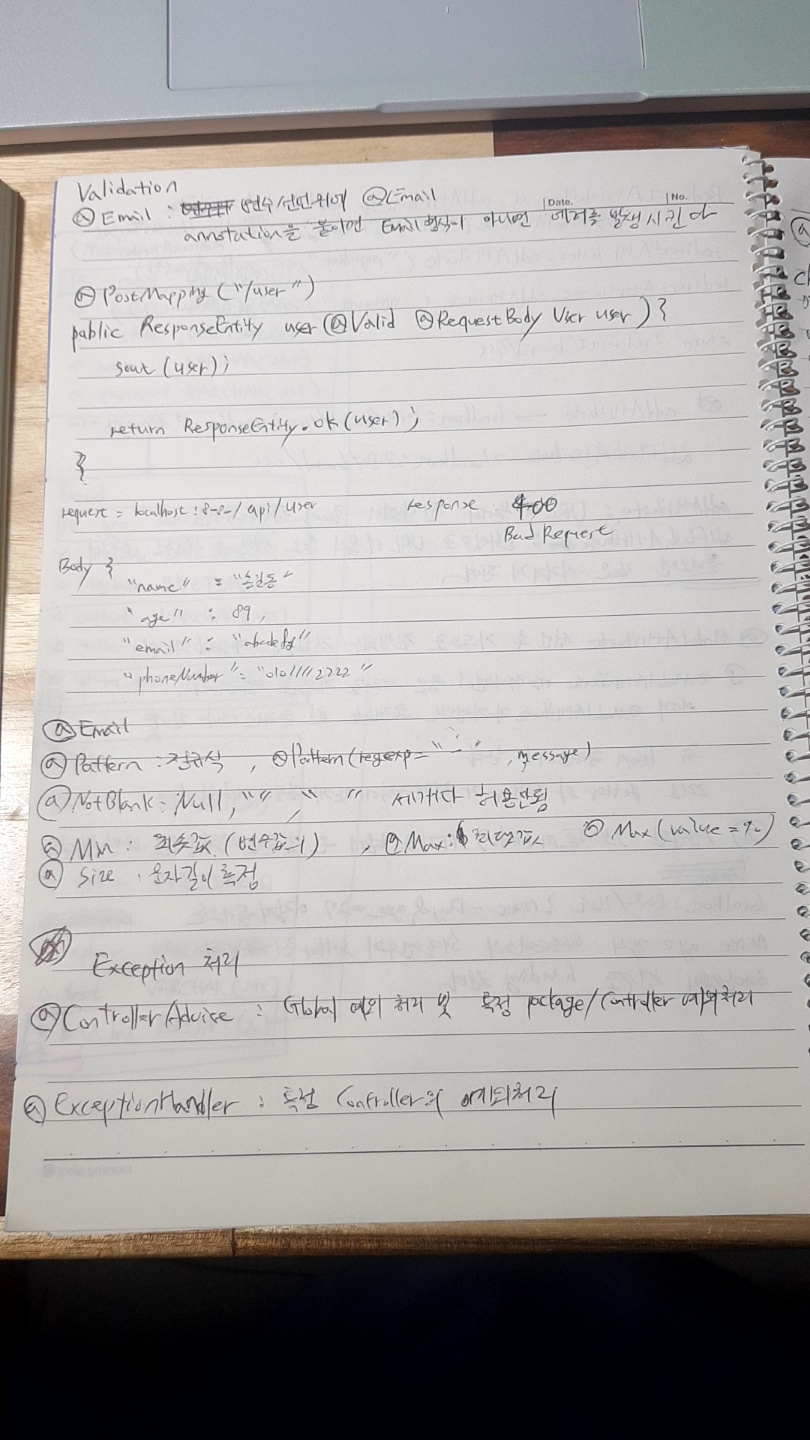 Validation
@Email : 변수 선언 위에 @Email
Date. No.
annotation을 붙이면 Email 형식이 아니면 에러를 발생시킨다
@PostMapping("/user")
public ResponseEntity user(@Valid @RequestBody User user) {
sout(user);
return ResponseEntity.ok(user);
}
request = localhost:8080/api/user response 400
Bad Request
Body {
"name" : "홍길동"
"age" : 89,
"email" : "abcdefg"
"phoneNumber" : "01011112222"
@Email
@Pattern : 정규식 , @Pattern(regexp="~" , message)
@NotBlank : Null, "", " " 세개다 허용안됨
@Min : 최솟값 (변수값의) , @Max : 최댓값 @Max(value=90)
@Size : 문자길이 측정
Exception 처리
@ControllerAdvise : Global 예외 처리 및 특정 package/Controller 예외처리
@ExceptionHandler : 특정 Controller의 예외처리